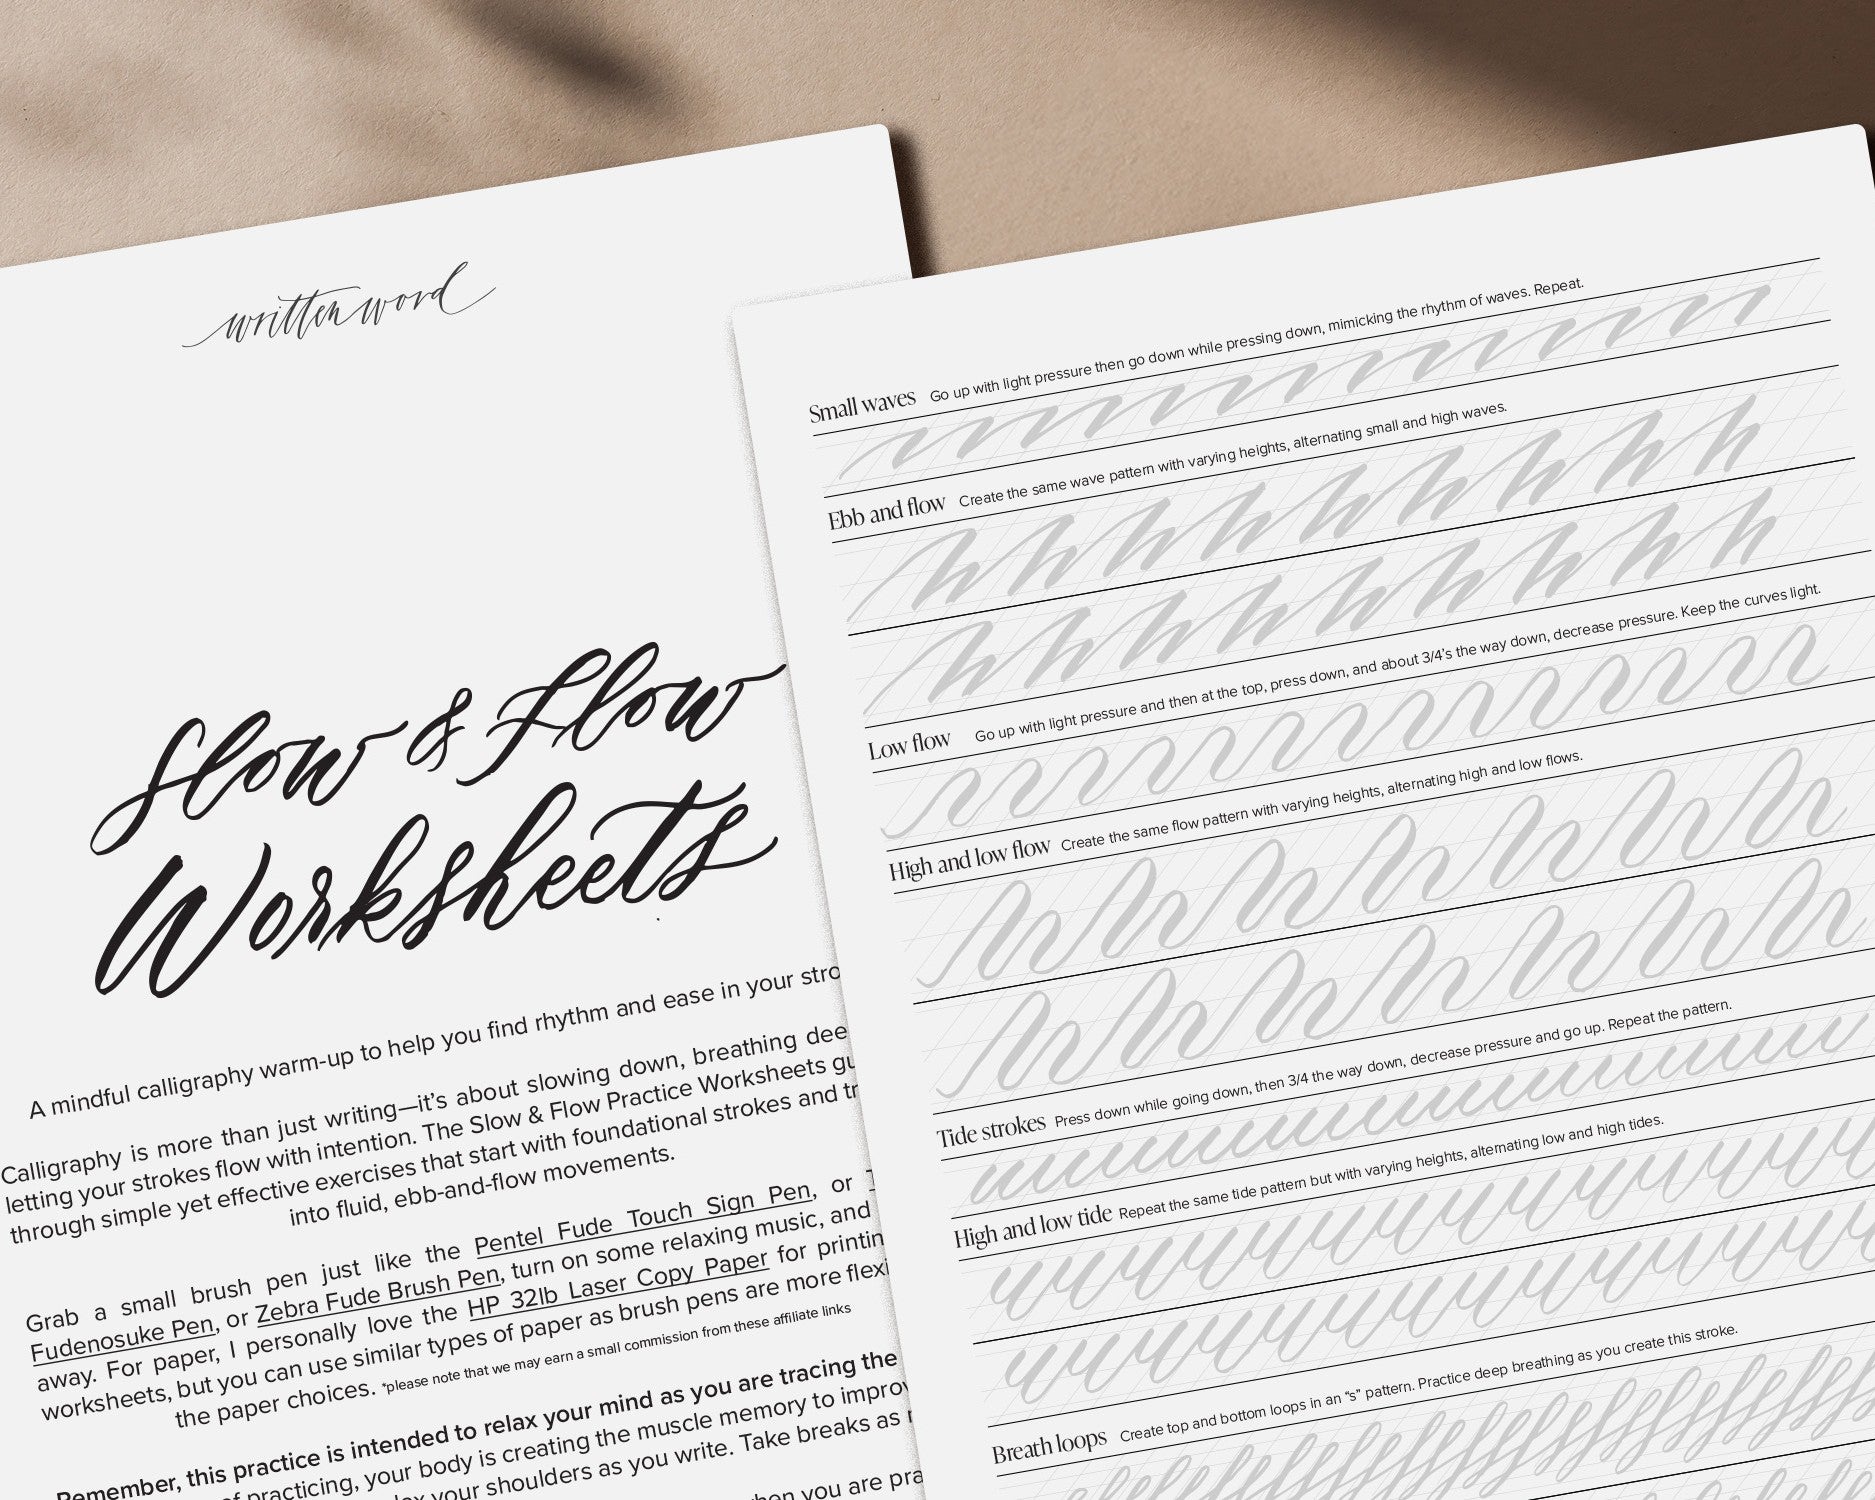 written word
Slow & Flow
Worksheets
A mindful calligraphy warm-up to help you find rhythm and ease in your
Calligraphy is more than just writing—it's about slowing down, breathing
letting your strokes flow with intention. The Slow & Flow Practice Worksheets
through simple yet effective exercises that start with foundational strokes and
into fluid, ebb-and-flow movements.
Grab a small brush pen just like the Pentel Fude Touch Sign Pen, or
Fudenosuke Pen, or Zebra Fude Brush Pen, turn on some relaxing music, and
away. For paper, I personally love the HP 32lb Laser Copy Paper for
worksheets, but you can use similar types of paper as brush pens are more
the paper choices. *please note that we may earn a small commission from these affiliate links
Remember, this practice is intended to relax your mind as you are tracing the
of practicing, your body is creating the muscle memory to
your shoulders as you write. Take breaks as
when you are
Small waves Go up with light pressure then go down while pressing down, mimicking the rhythm of waves. Repeat.
Ebb and flow Create the same wave pattern with varying heights, alternating small and high waves.
Low flow Go up with light pressure and then at the top, press down, and about 3/4's the way down, decrease pressure. Keep the curves light.
High and low flow Create the same flow pattern with varying heights, alternating high and low flows.
Tide strokes Press down while going down, then 3/4 the way down, decrease pressure and go up. Repeat the pattern.
High and low tide Repeat the same tide pattern but with varying heights, alternating low and high tides.
Breath loops Create top and bottom loops in an "s" pattern. Practice deep breathing as you create this stroke.